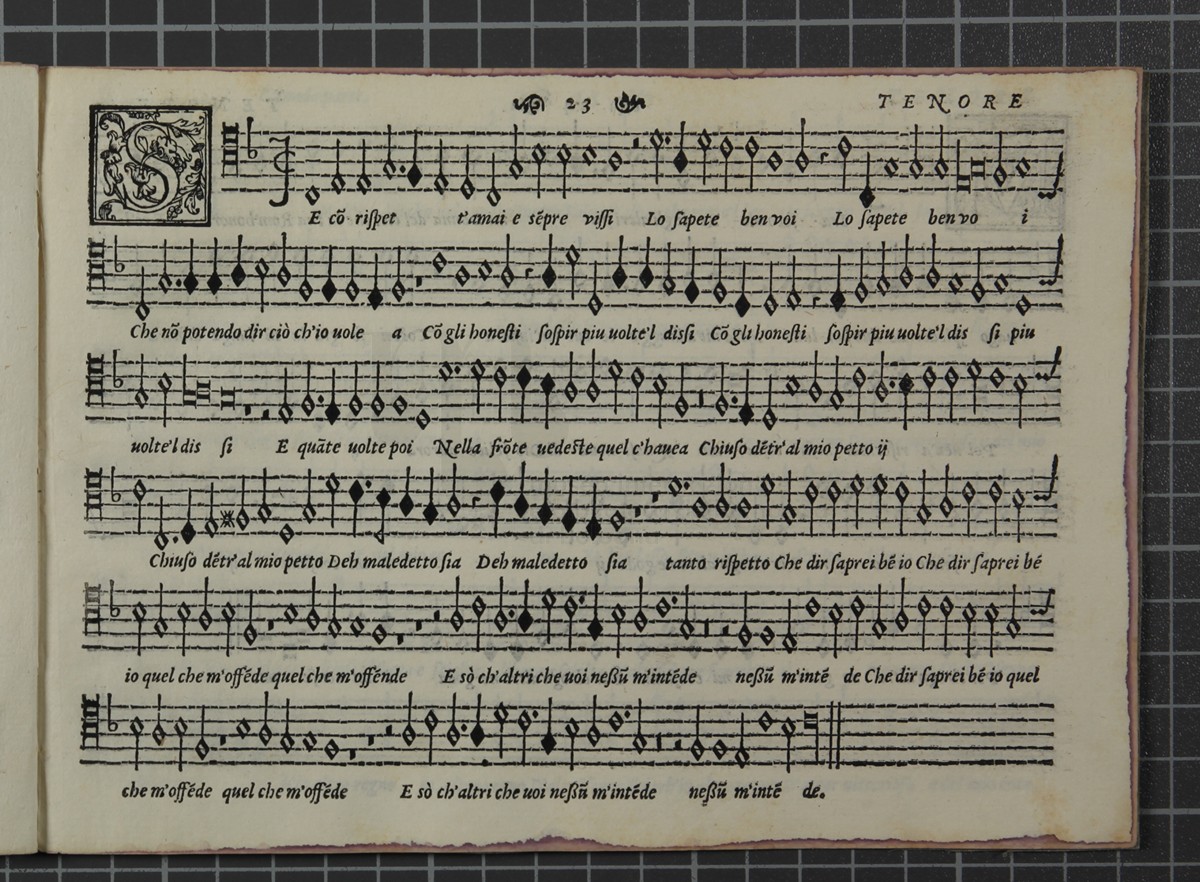 23 TENORE
S E cõ rispet t'amai e sẽpre vissi Lo sapete ben voi Lo sapete ben vo i
Che nõ potendo dir ciò ch'io uole a Cõ gli honesti sospir piu uolte'l dissi Cõ gli honesti sospir piu uolte'l dis si piu
uolte'l dis si E quãte uolte poi Nella frõte uedeste quel c'hauea Chiuso dẽtr'al mio petto ij
Chiuso dẽtr'al mio petto Deh maledetto sia Deh maledetto sia tanto rispetto Che dir saprei bẽ io Che dir saprei bẽ
io quel che m'offẽde quel che m'offẽnde E sò ch'altri che uoi neßũ m'intẽde neßũ m'intẽ de Che dir saprei bẽ io quel
che m'offẽde quel che m'offẽde E sò ch'altri che uoi neßũ m'intẽde neßũ m'intẽ de.